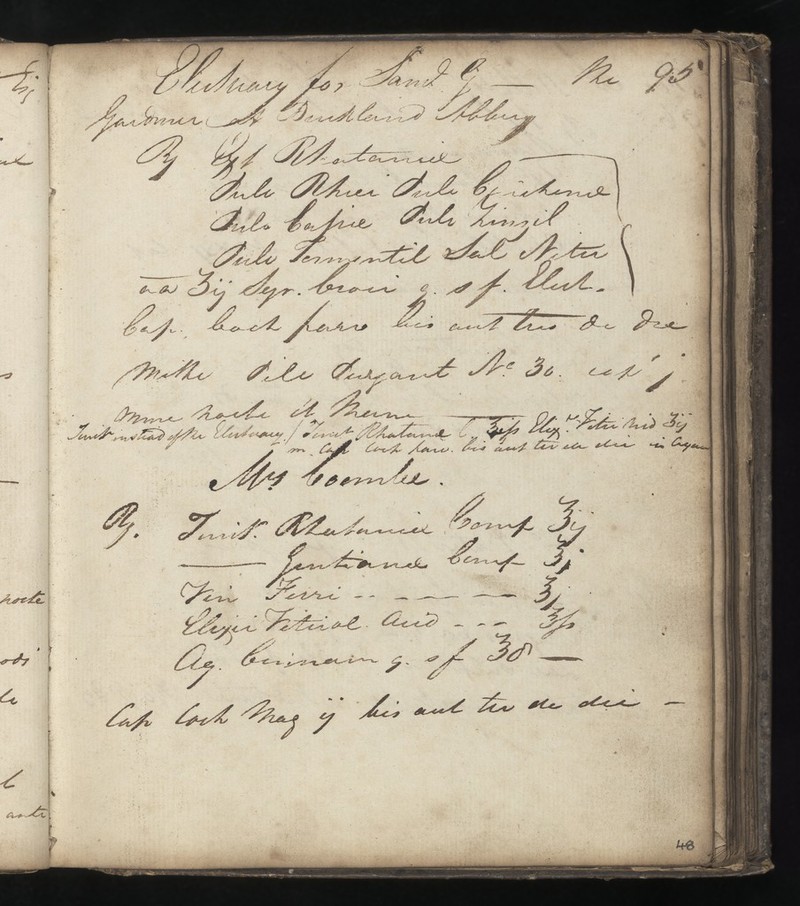 Electuary for Saml G — No 95
Gardner At Buckland Abbey
Rx Ext Rhataniæ
Pulv Rhei Pulv Cinchonæ
Pulv Pulv Zinzib
Pulv Tormentil Sal Niter
aa ʒij Syr. Croci q. s f. Elect.
Cap. Coch parv bis aut ter de die
Mitte Pill Purgant No 30. cap j
omne nocte et Mane
Tinct instead of the Electuary / Tinct Rhataniæ ʒiss Elix. Vitrioli ʒij
m. Cap Coch parv. bis aut ter de die in
Mrs Coombe.
Rx. Tinct. Rhataniæ Comp ʒij
—— Gentianæ Comp ʒj
Vin Ferri -- - - - - ʒj
Elixir Vitriol. Acid - - - ʒss
Aq. Cinnam q. s f ʒ8 —
Cap Coch Mag ij bis aut ter de die -
nocte
48